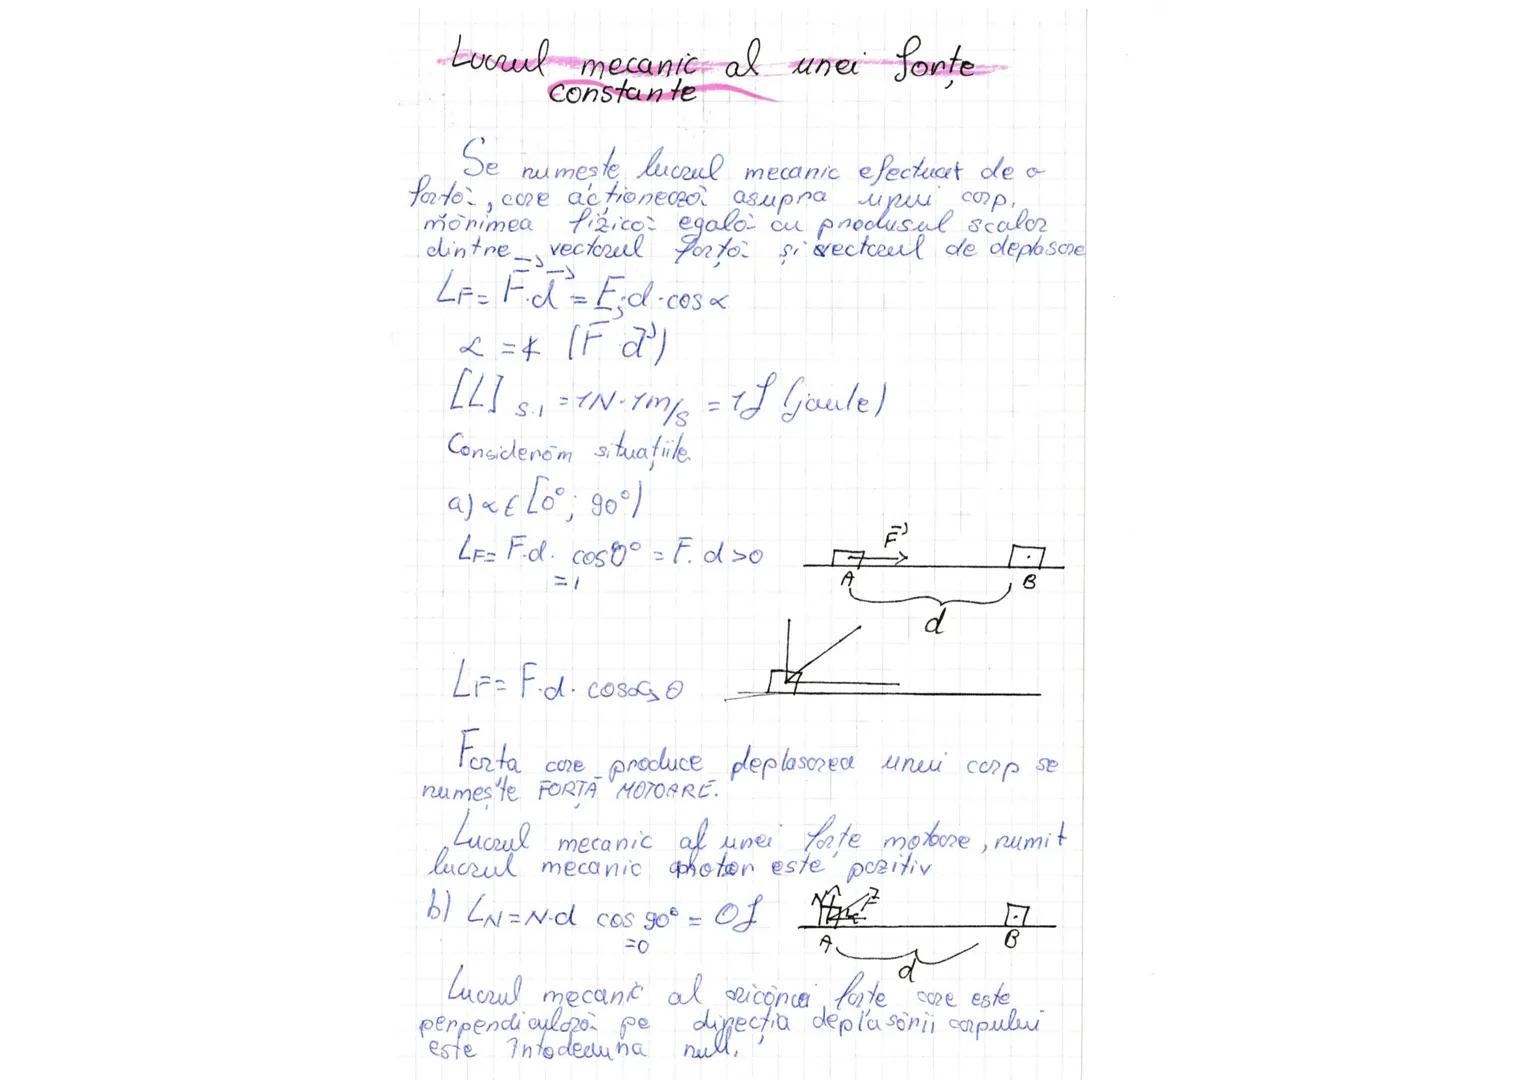 Lucrul mecanic al unei forțe
constante
Se numește lucrul mecanic efectuat de o
forță, care acționează asupra unui corp,
mărimea fizică egală cu produsul scalar
dintre vectorul forță și vectorul de deplasare
LF = F⃗·d⃗ = F·d·cos α
α = ∢ (F⃗ d⃗)
[L] S.I = 1N·1m/s = 1J (joule)
Considerăm situațiile
a) α ∈ [0°; 90°)
LF = F·d· cos 0° = F·d > 0
= 1
F⃗
A B
d
LF = F·d· cos
Forța care produce deplasarea unui corp se
numește FORȚĂ MOTOARE.
Lucrul mecanic al unei forțe motoare, numit
lucrul mecanic motor este pozitiv
b) LN = N·d cos 90° = 0J
=0
N F
A B
d
Lucrul mecanic al oricărei forțe care este
perpendiculară pe direcția deplasării corpului
este întodeauna null.